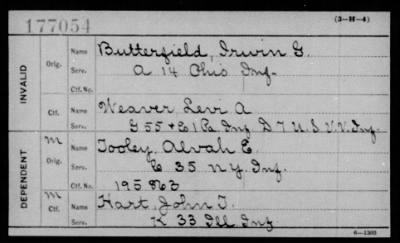 177054
(3-H-4)
INVALID
Orig. Name Butterfield, Irwin G.
Serv. A 14 Ohio Inf.
Ctf. No.
Ctf. Name Weaver, Levi A
Serv. G 55 & E 1 Pa. Inf. D 7 U.S.V.V. Inf.
DEPENDENT
M Orig. Name Tooley, Alvah E.
Serv. E 35 N.Y. Inf.
Ctf. No. 195863
M Ctf. Name Hart, John T.
Serv. K 33 Ill Inf
6-1303